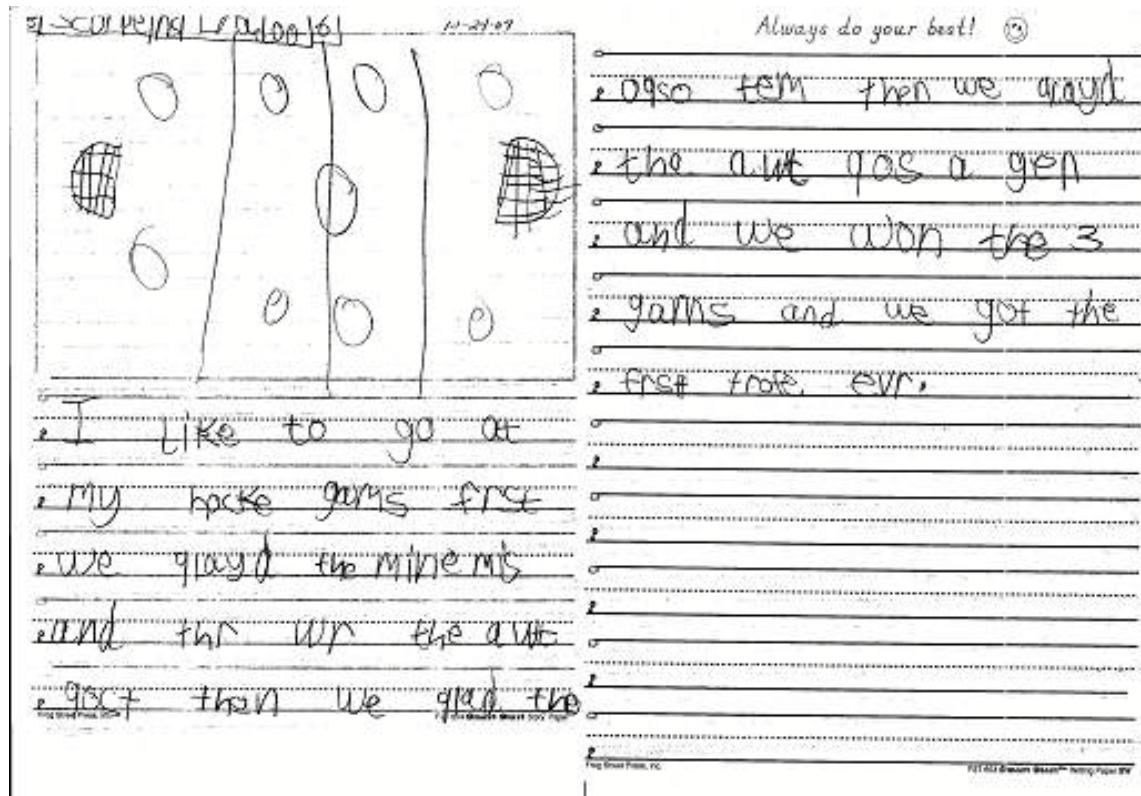 I Like to go at
my hocke gams frst
we qlayd the minemis
and thr wr the awt
qost then we qlad the
Always do your best!
oqso tem then we qlayd
the awt qos a gen
and we won the 3
gams and we got the
frst trofe evr.
Frog Street Press, Inc.